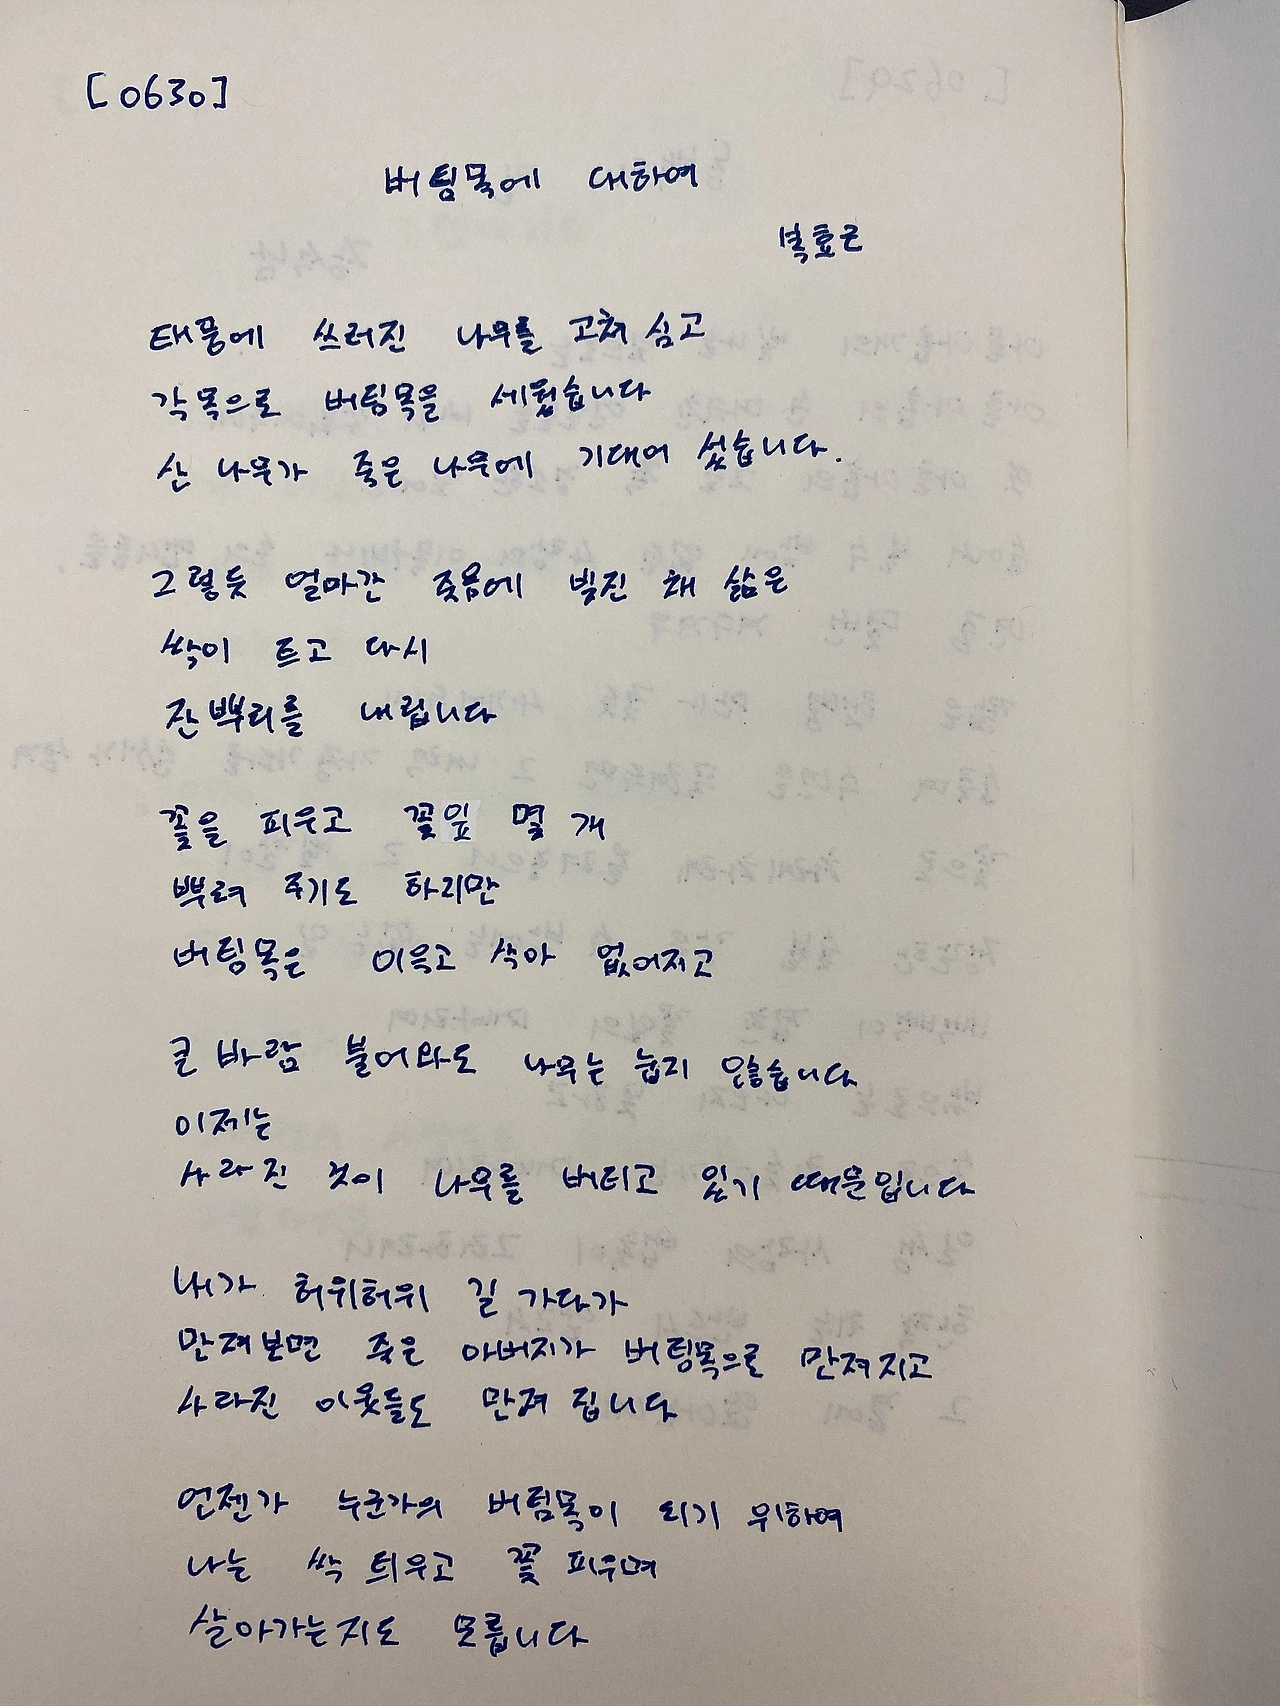 [0630]
버팀목에 대하여
복효근
태풍에 쓰러진 나무를 고쳐 심고
각목으로 버팀목을 세웠습니다
산 나무가 죽은 나무에 기대어 섰습니다.
그렇듯 얼마간 죽음에 빚진 채 삶은
싹이 트고 다시
잔뿌리를 내립니다
꽃을 피우고 꽃잎 몇 개
뿌려 주기도 하지만
버팀목은 이윽고 삭아 없어지고
큰 바람 불어와도 나무는 눕지 않습니다
이제는
사라진 것이 나무를 버티고 있기 때문입니다
내가 허위허위 길 가다가
만져보면 죽은 아버지가 버팀목으로 만져지고
사라진 이웃들도 만져 집니다
언젠가 누군가의 버팀목이 되기 위하여
나는 싹 틔우고 꽃 피우며
살아가는지도 모릅니다